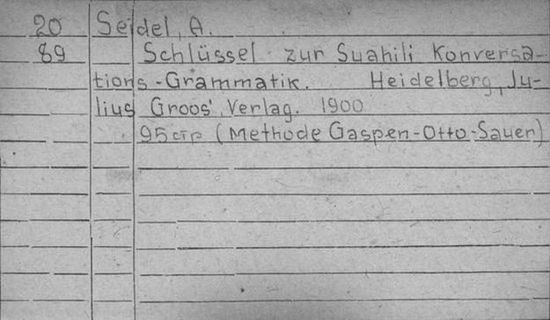 20 Seidel, A.
89 Schlüssel zur Suahili Konversa-
tions-Grammatik. Heidelberg, Ju-
lius Groos' Verlag. 1900
95 стр (Methode Gaspen-Otto-Sauer)